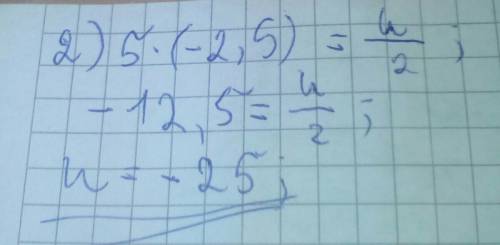 2) 5·(-2,5) = u/2;
-12,5 = u/2;
u = -25;